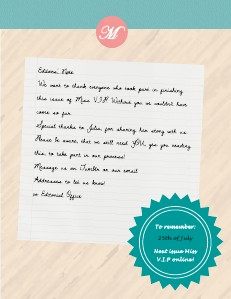 M
Editorial Note
We want to thank everyone who took part in finishing
this issue of Miss V.I.P. Without you we wouldn't have
come so far.
Special thanks to Julia, for sharing her story with us.
Please be aware, that we still need YOU, yes you reading
this, to take part in our process!
Message us on Tumblr or our email
Addresses to let us know!
xx Editorial Office
To remember:
25th of July
Next issue Miss
V.I.P online!